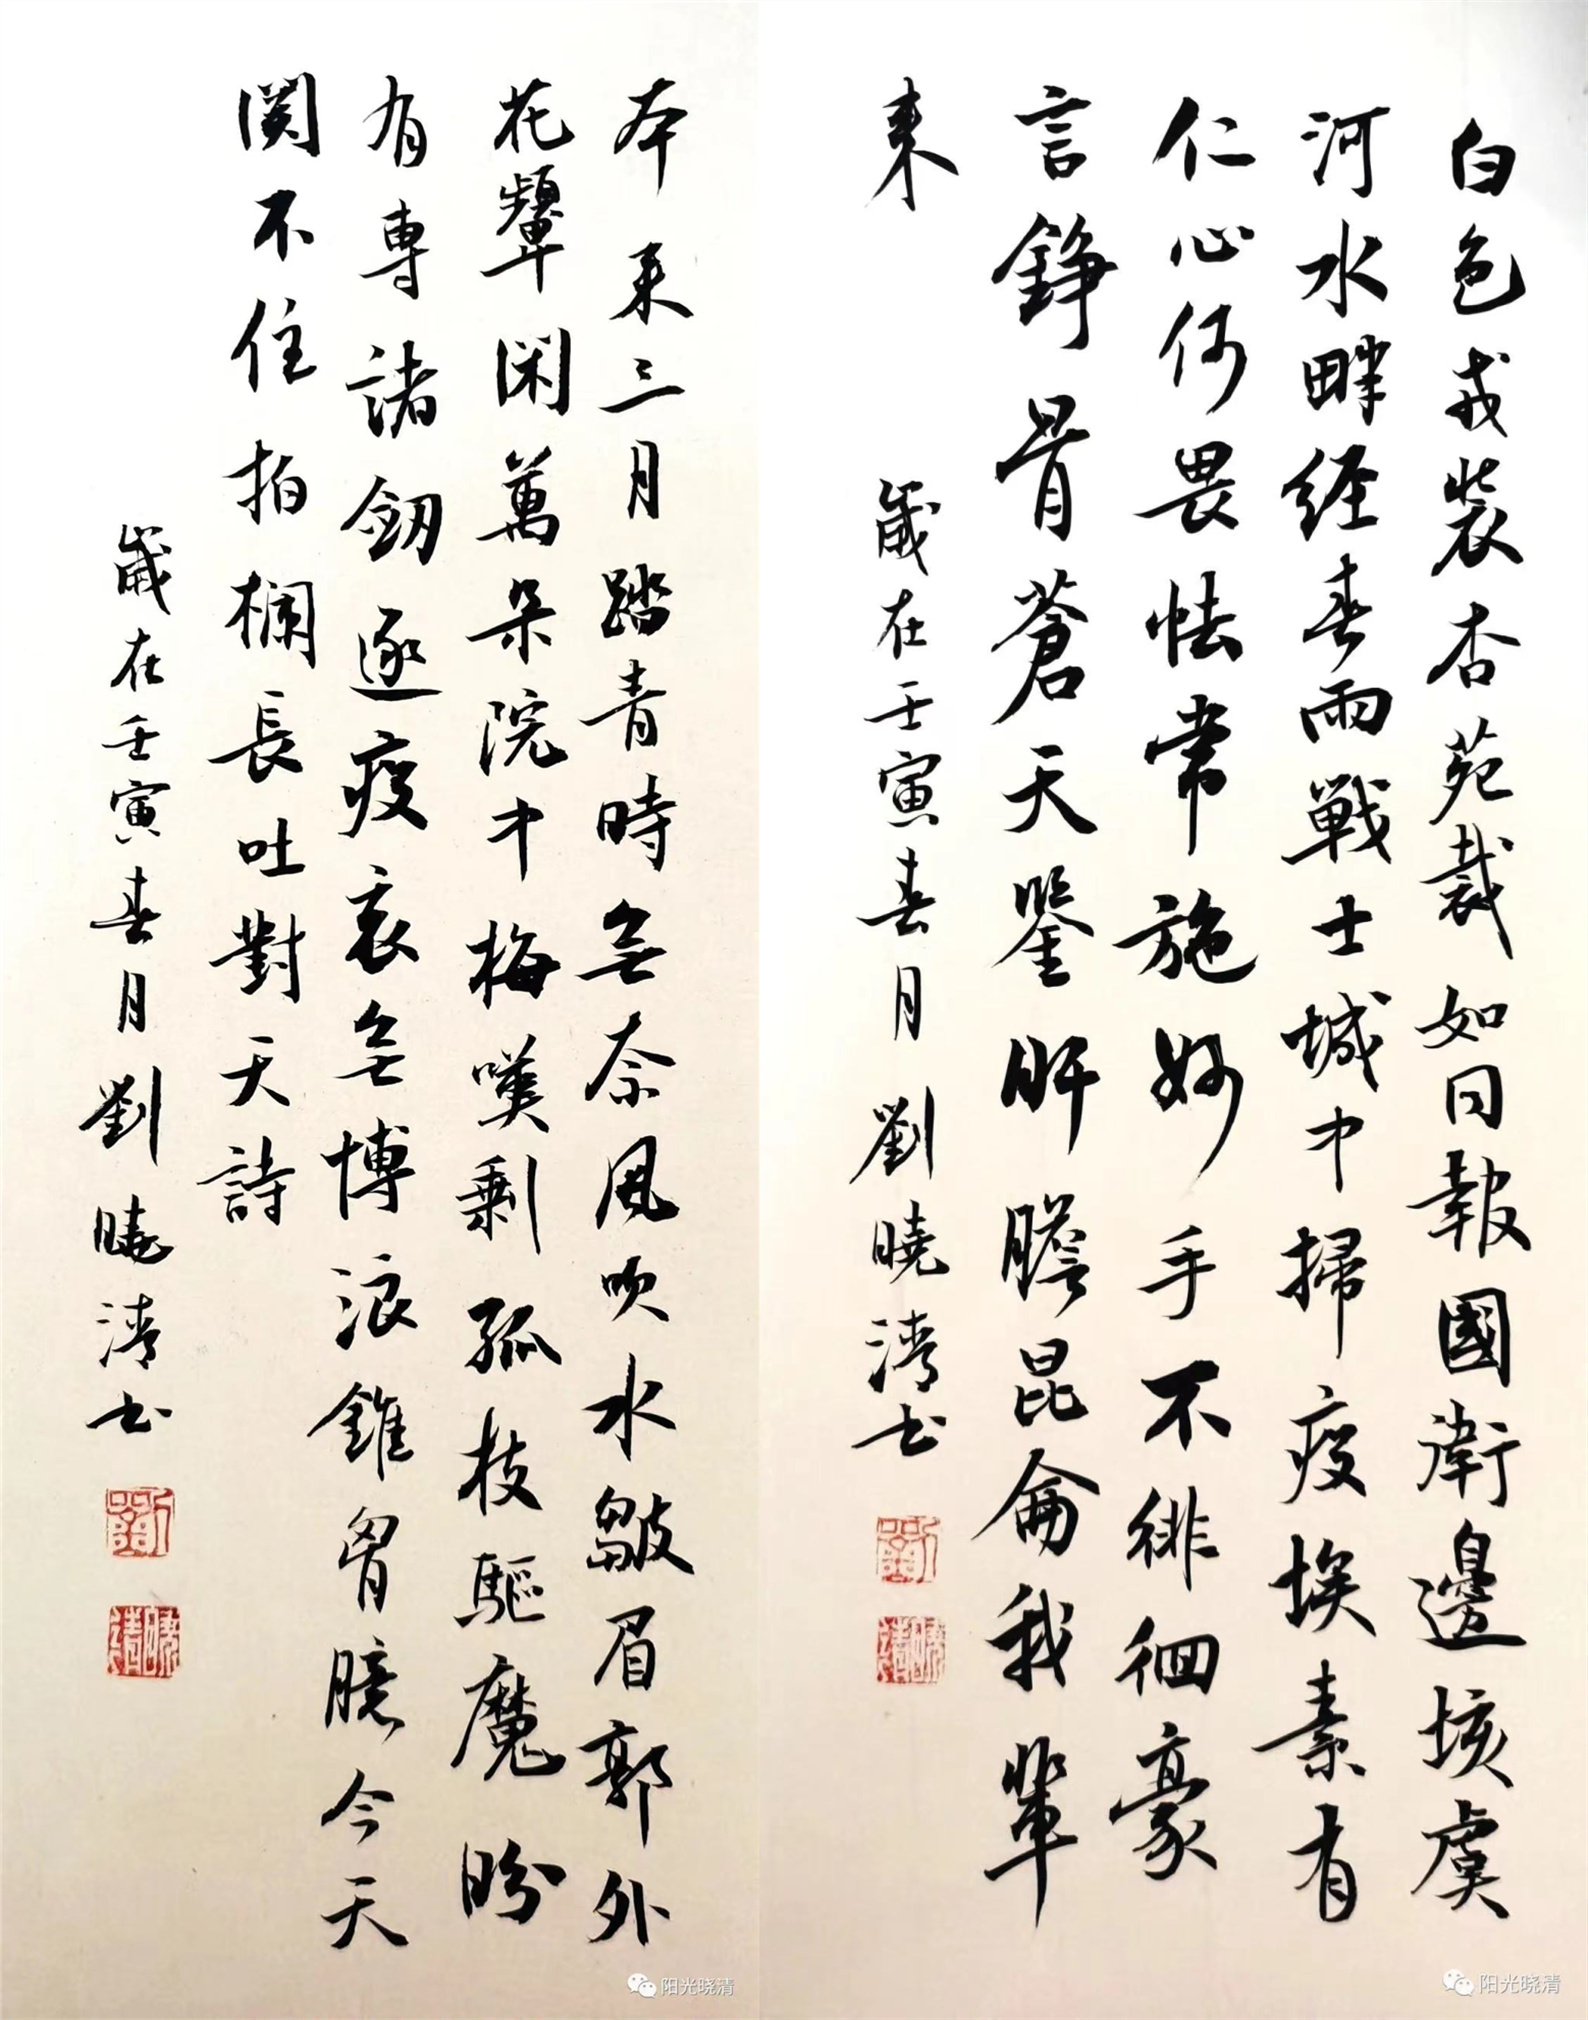 白色戎裝杏苑裁如同報國衛邊垓虞
河水畔经春雨戰士城中掃疫埃素有
仁心何畏怯常施妙手不徘徊豪
言錚骨蒼天鑒肝膽昆侖我輩
来
歲在壬寅春月劉曉清书
本来三月踏青時無奈風吹水皺眉郭外
花顰闲萬朵院中梅嘆剩孤枝驅魔盼
有專諸劍逐疫哀無博浪錐胷臆今天
関不住拍欄長吐對天詩
歲在壬寅春月劉曉清书
阳光晓清
阳光晓清